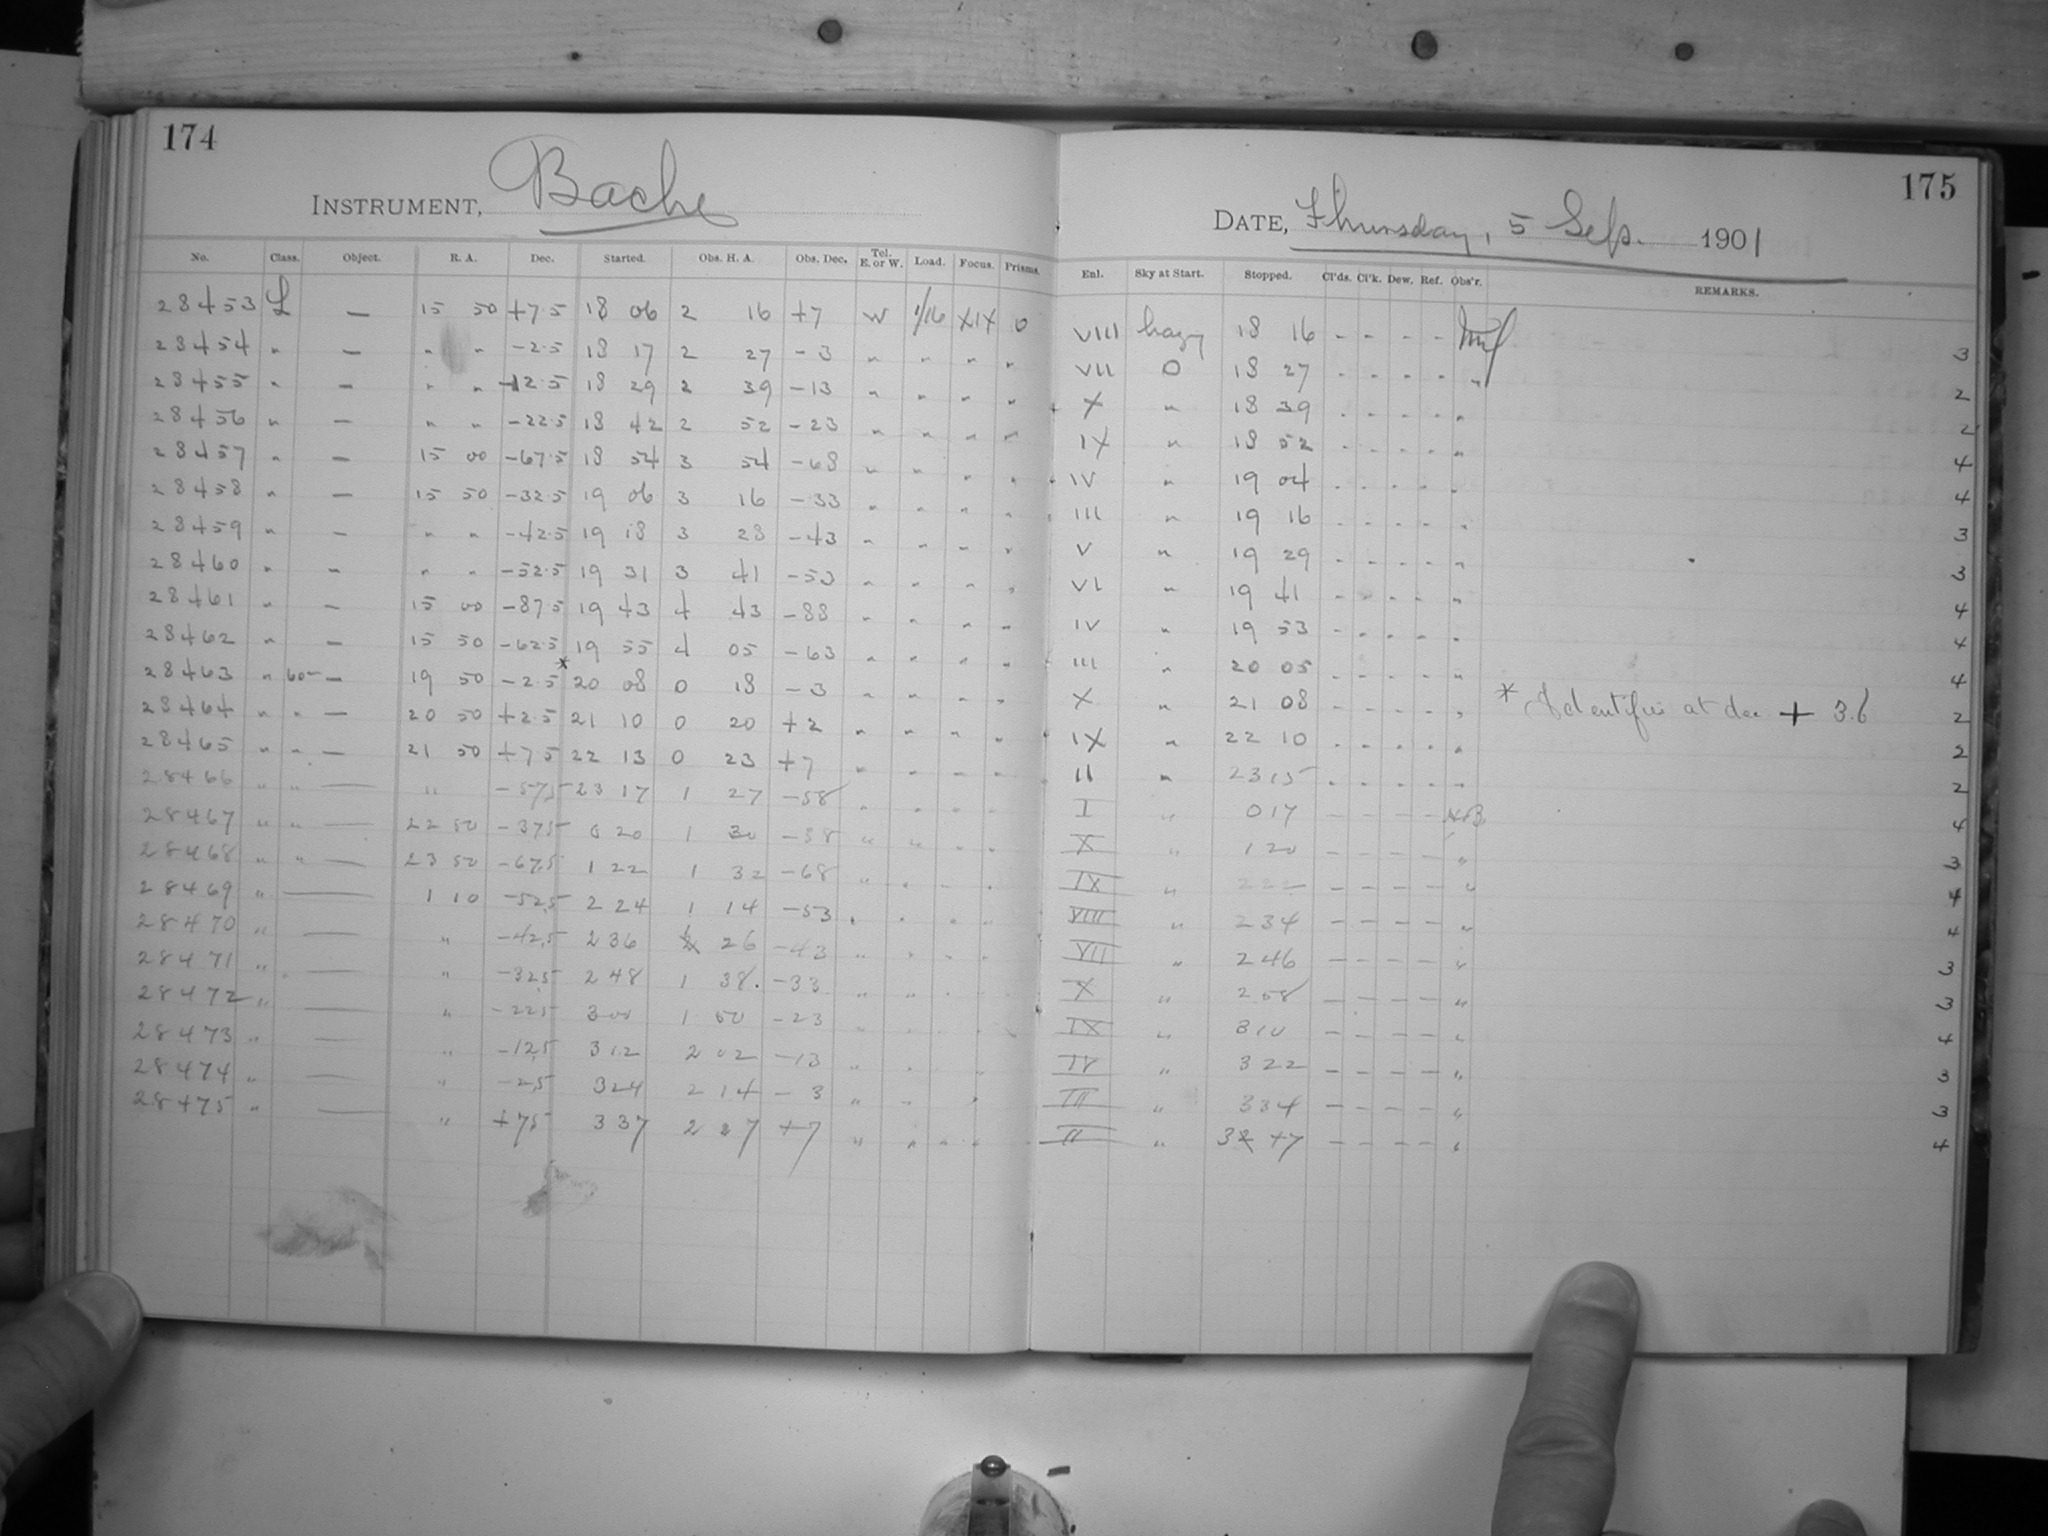 174
INSTRUMENT, Bache
No. Class. Object. R. A. Dec. Started. Obs. H. A. Obs. Dec. Tel. E. or W. Load. Focus. Prisms.
28453 L — 15 50 +7.5 18 06 2 16 +7 W 1/16 XIX 0
28454 " — " " -2.5 18 17 2 27 -3 " " " "
28455 " — " " -12.5 18 29 2 39 -13 " " " "
28456 " — " " -22.5 18 42 2 52 -23 " " " "
28457 " — 15 00 -67.5 18 54 3 54 -68 " " " "
28458 " — 15 50 -32.5 19 06 3 16 -33 " " " "
28459 " — " " -42.5 19 18 3 28 -43 " " " "
28460 " — " " -52.5 19 31 3 41 -53 " " " "
28461 " — 15 00 -87.5 19 43 4 43 -88 " " " "
28462 " — 15 50 -62.5 19 55 4 05 -63 " " " "
28463 " 60— — 19 50 -2.5 * 20 08 0 18 -3 " " " "
28464 " " — 20 50 +2.5 21 10 0 20 +2 " " " "
28465 " " — 21 50 +7.5 22 13 0 23 +7 " " " "
28466 " " — " -57.5 23 17 1 27 -58 " " " "
28467 " " — 22 50 -37.5 0 20 1 30 -38 " " " "
28468 " " — 23 50 -67.5 1 22 1 32 -68 " " " "
28469 " — 1 10 -52.5 2 24 1 14 -53 " " " "
28470 " — " -42.5 2 36 1 26 -43 " " " "
28471 " — " -32.5 2 48 1 38. -33 " " " "
28472 " — " -22.5 3 00 1 50 -23 " " " "
28473 " — " -12.5 3 12 2 02 -13 " " " "
28474 " — " -2.5 3 24 2 14 -3 " " " "
28475 " — " +7.5 3 37 2 27 +7 " " " "
175
DATE, Thursday, 5 Sep. 1901
Enl. Sky at Start. Stopped. Cl'ds. Cl'k. Dew. Ref. Obs'r. REMARKS.
VIII hazy 18 16 - - - - 3
VII 0 18 27 - - - - " 2
X " 18 39 - - - - " 2
IX " 18 52 - - - - " 4
IV " 19 04 - - - - " 4
III " 19 16 - - - - " 3
V " 19 29 - - - - " 3
VI " 19 41 - - - - " 4
IV " 19 53 - - - - " 4
III " 20 05 - - - - " 4
X " 21 08 - - - - " * Identifies at dec + 3.6 2
IX " 22 10 - - - - " 2
II " 23 15 - - - - " 2
I " 0 17 - - - - 4
X " 1 20 - - - - " 3
IX " 2 22 - - - - " 4
VIII " 2 34 - - - - " 4
VII " 2 46 - - - - " 3
X " 2 58 - - - - " 3
IX " 3 10 - - - - " 4
IV " 3 22 - - - - " 3
III " 3 34 - - - - " 3
II " 3 47 - - - - " 4